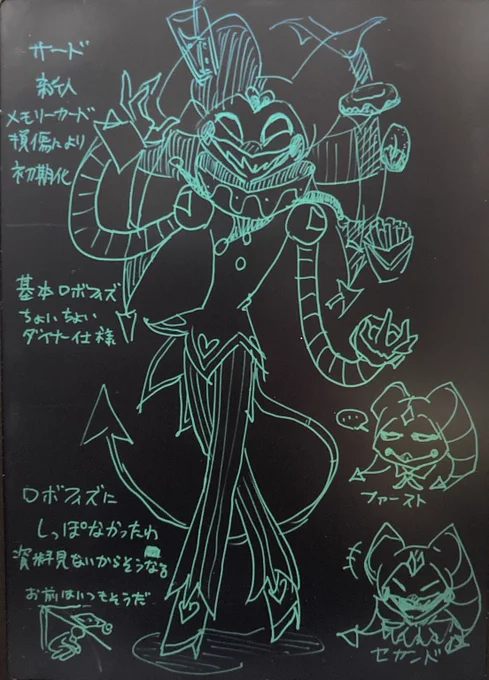 サード
新人
メモリーカード
損傷により
初期化
基本ロボフィズ
ちょいちょい
ダイナー仕様
…
ファースト
ロボフィズに
しっぽなかったわ
資料見ないからそうなる
お前はいつもそうだ
セカンド